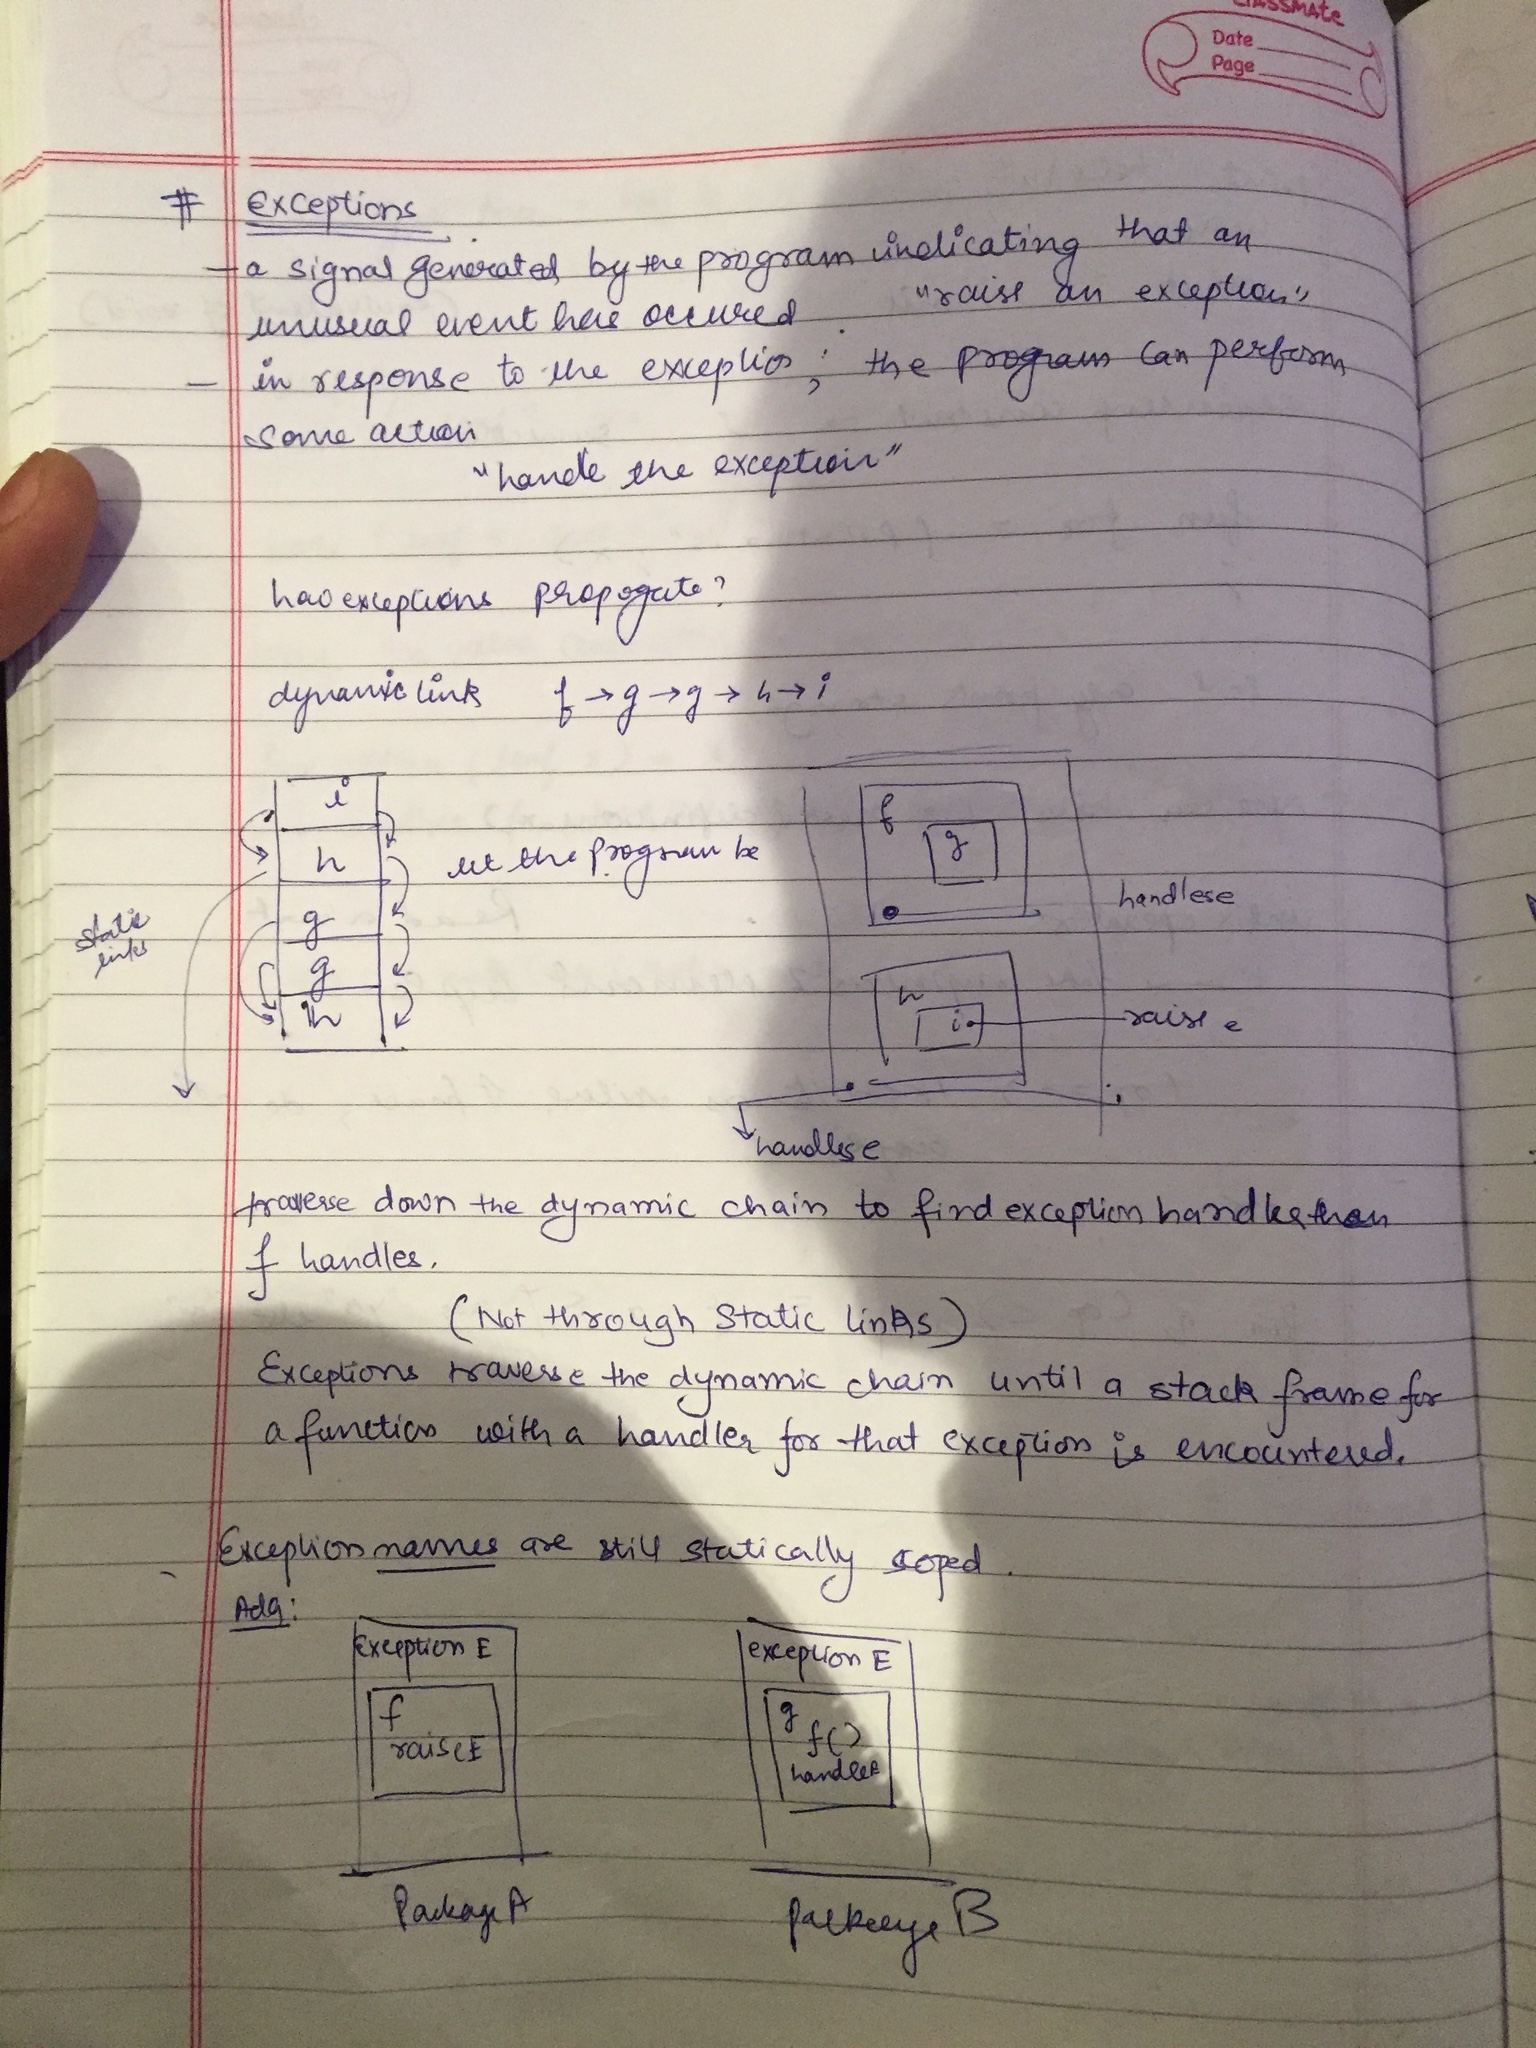 classmate
Date
Page
# Exceptions
- a signal generated by the program indicating that an
unusual event has occured. "raise an exception"
- in response to the exception, the program can perform
some action
"handle the exception"
how exceptions propogate?
dynamic link f → g → g → h → i
i
h
g
g
h
static
links
let the program be
f
g
handles e
h
i
raise e
handles e
traverse down the dynamic chain to find exception handler then
f handles.
(Not through Static links)
Exceptions traverse the dynamic chain until a stack frame for
a function with a handler for that exception is encountered.
Exception names are still statically scoped.
Ada:
Exception E
f
raise E
Package A
exception E
g
f()
handle E
package B